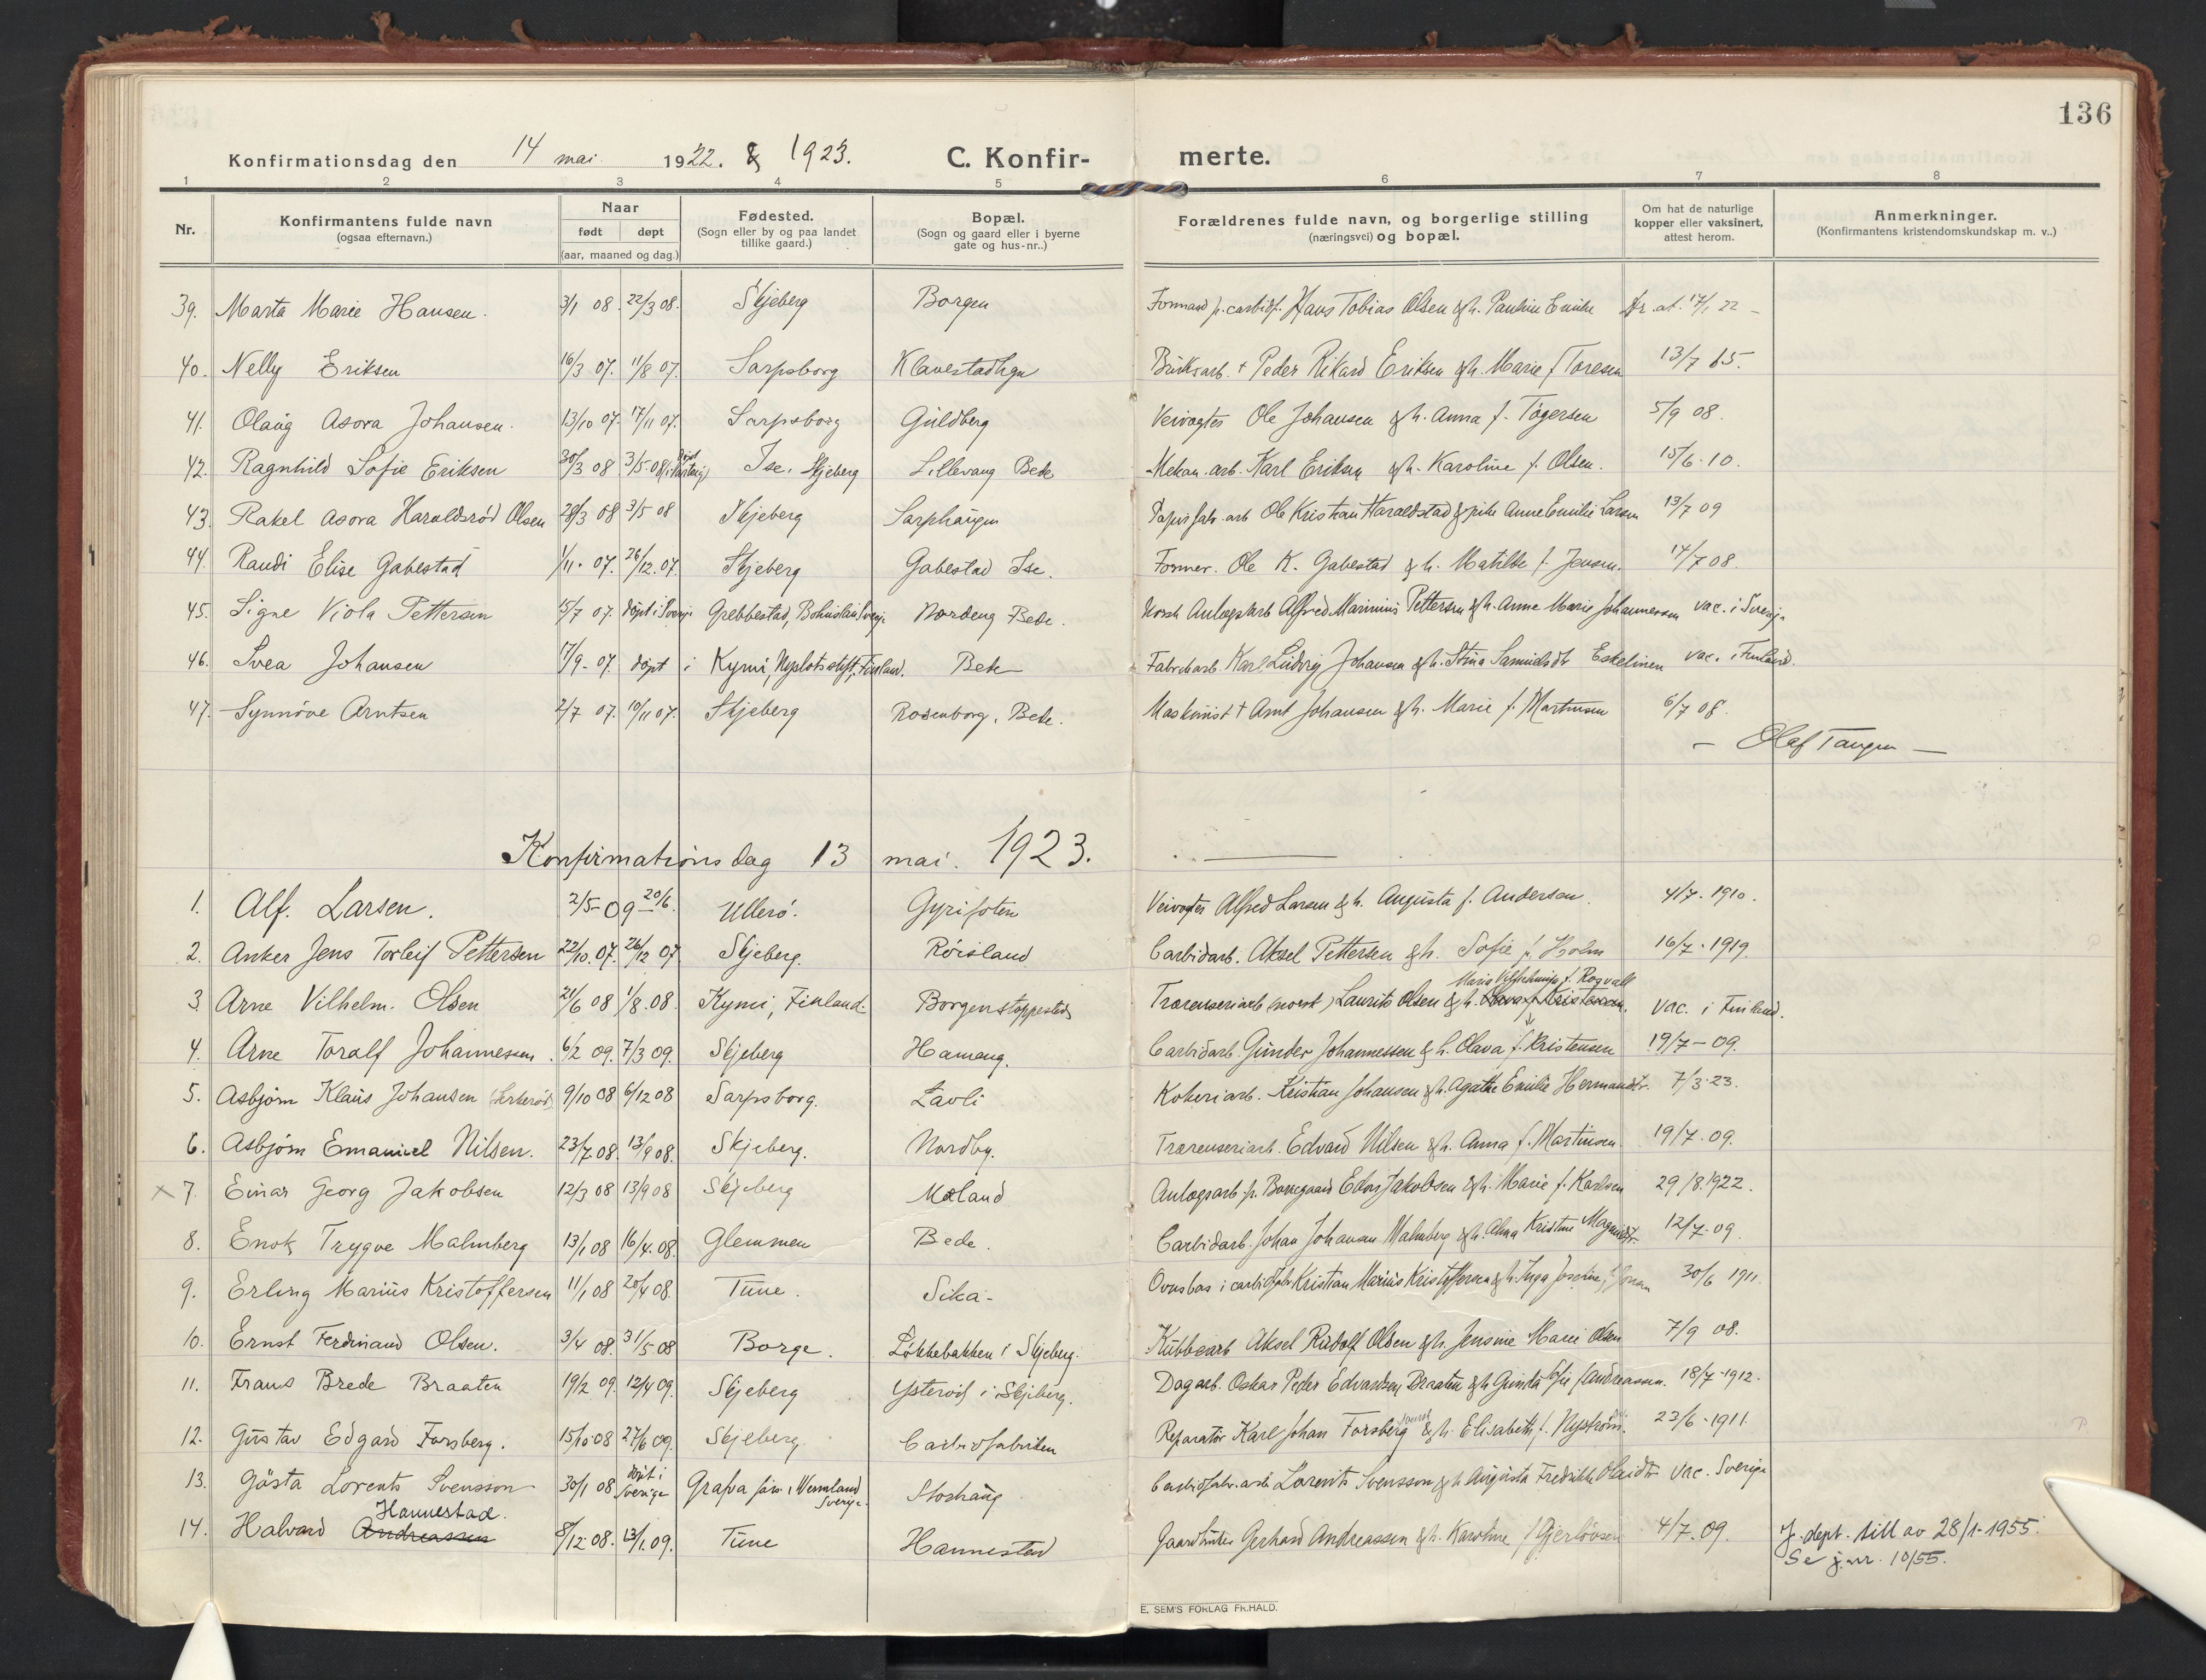 136
Konfirmationsdag den 14 mai 1922. & 1923. C. Konfir- merte.
1 2 3 4 5 6 7 8
Nr. Konfirmantens fulde navn (ogsaa efternavn.) Naar født døpt (aar, maaned og dag.) Fødested. (Sogn eller by og paa landet tillike gaard.) Bopæl. (Sogn og gaard eller i byerne gate og hus-nr..) Forældrenes fulde navn, og borgerlige stilling (næringsvei) og bopæl. Om hat de naturlige kopper eller vaksinert, attest herom. Anmerkninger. (Konfirmantens kristendomskundskap m. v..)
39. Marta Marie Hansen. 3/1 08. 22/3 08. Skjeberg Borgen Formand p. carbidf. Hans Tobias Olsen & h. Pauline Emilie dr. at. 17/1 22 -
40. Nelly Eriksen 16/3 07. 11/8 07. Sarpsborg Klavestadhgn Bruksarb. + Peder Rikard Eriksen & h. Marie f Toresen 13/7 15.
41. Olaug Asora Johansen. 13/10 07. 17/11 07. Sarpsborg Guldberg Veivogter Ole Johansen & h. Anna f. Tøgersen 5/9 08.
42. Ragnhild Sofie Eriksen 30/3 08 3/5 08 Ise, Skjeberg Lillevang Bede Mekan. arb. Karl Eriksen & h. Karoline f. Olsen. 15/6 10.
43. Rakel Asora Haraldsrød Olsen 28/3 08 3/5 08 Skjeberg Sarphaugen Papirfabr. arb Ole Kristian Haraldstad & pike Anne Emilie Larsen 13/7 09
44. Randi Elise Gabestad 1/11. 07. 26/12. 07. Skjeberg Gabestad Ise. Former. Ole K. Gabestad & h. Matilde f. Jensen. 14/7 08.
45. Signe Viola Pettersen 15/7 07. døpt i Sverige Grebbestad, Bohuslän Sverige Nordeng Bede. Norsk Anlægsarb Alfred Marinius Pettersen & h. Anne Marie Johannesen vac. i Sverige
46. Svea Johansen 17/9 - 07. døpt i Kymi, Nyslotsstift, Finland. Bede Fabrikarb. Karl Ludvig Johansen & h. Stina Samuelsdtr Eskelinen vac. i Finland.
47. Synnöve Arntsen 2/7 07. 10/11 07. Skjeberg Rosenborg, Bede. Maskinist + Arnt Johansen & h. Marie f. Martinsen 6/7 08.
- Olaf Tangen -
Konfirmationsdag 13 mai. 1923.
1. Alf. Larsen. 2/5 - 09 - 20/6. Ullerö. Gyrisoten Veivogter Alfred Larsen & h. Augusta f. Andersen. 4/7. 1910.
2. Anker Jens Torleif Pettersen 22/10. 07. 26/12 07 Skjeberg. Røisland Carbidarb. Aksel Pettersen & h. Sofie f. Holm 16/7. 1919.
3 Arne Vilhelm. Olsen 21/6 08 1/8. 08. Kymi, Finland. Borgenstoppested Træreenseriarb. (norsk) Laurits Olsen & h. Olava f. Kristensen. Maria Vilhelmina f. Rogvall vac. i Finland.
4. Arne Toralf Johannesen. 6/2 09. 7/3 09. Skjeberg Hamang. Carbidarb. Gunder Johannessen & h. Olava f. Kristensen 19/7 - 09.
5. Asbjørn Klaus Johansen 9/10 08 6/12 08 Sarpsborg. Lavli Kokeriarb. Kristian Johansen & h. Agathe Emilie Hermansdtr. 7/3. 23.
6. Asbjørn Emanuel Nilsen. 23/7. 08. 13/9 08. Skjeberg. Nordby. Træreenseriarb. Edvard Nilsen & h. Anna f. Martinsen. 19/7. 09.
x 7. Einar Georg Jakobsen 12/3 08 13/9 08 Skjeberg Moland Anlægsarb. p. Borregaard Edvin Jakobsen & h. Marie f. Karlsen 29/8. 1922.
8. Enok Trygve Malmberg 13/1 08 16/4. 08. Glemmen Bede. Carbidarb. Johan Johansen Malmberg & h. Alma Kristine Magnusdtr. 12/7. 09.
9. Erling Marius Kristoffersen 11/1 08 20/4 08. Tune. Sika. Ovnsbas i carbidfabr. Kristian Marius Kristoffersen & h. Inga Josefine 30/6 1911.
10. Ernst Ferdinand Olsen. 3/4 08. 31/5 08 Borge. Løkkebakken i Skjeberg. Kubbearb Aksel Rudolf Olsen & h. Jensine Marie Olsen 7/9 08.
11. Frans Brede Braaten 19/2 09. 12/4 09. Skjeberg Ysterød i Skjeberg. Dagarb. Oskar Peder Edvardsen Braaten & h. Gunda Sofie f. Andreassen. 18/7 - 1912.
12. Gustav Edgard Forsberg. 15/10 08 27/6 09. Skjeberg Carbidfabriken Reparatør Karl Johan Forsberg & h. Elisabeth f. Nyström. 23/6 - 1911.
13. Gösta Lorents Svensson 30/1 08 döpt i Sverige Grafva förs. i Wermland Sverige. Storhaug Carbidfabr. arb Lorents Svensson & h Augusta Fredrikke Olaidtr vac. Sverige
14. Halvard Andreassen Hannestad. 8/12 08. 13/1. 09. Tune Hannestad Gaardbruker Gerhard Andreassen & h. Karoline f Gjerløvsen 4/7. 09. J. dept. till av 28/1-1955. Se j. nr. 10/55.
E. SEM'S FORLAG FR.HALD.